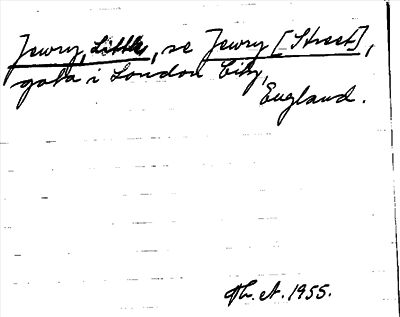 Jewry, Little, se Jewry [Street],
gata i London City,
England.
Th. et. 1955.